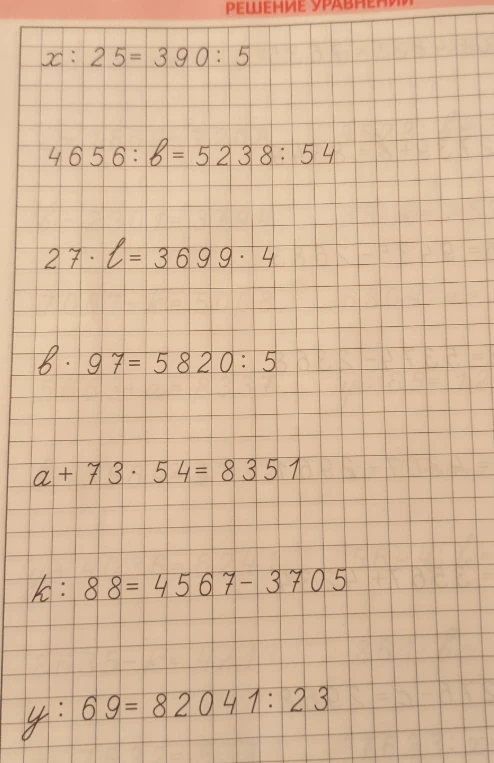 РЕШЕНИЕ УРАВНЕНИЙ
x : 25 = 390 : 5
4656 : в = 5238 : 54
27 · l = 3699 · 4
в · 97 = 5820 : 5
a + 73 · 54 = 8351
k : 88 = 4567 - 3705
y : 69 = 82041 : 23